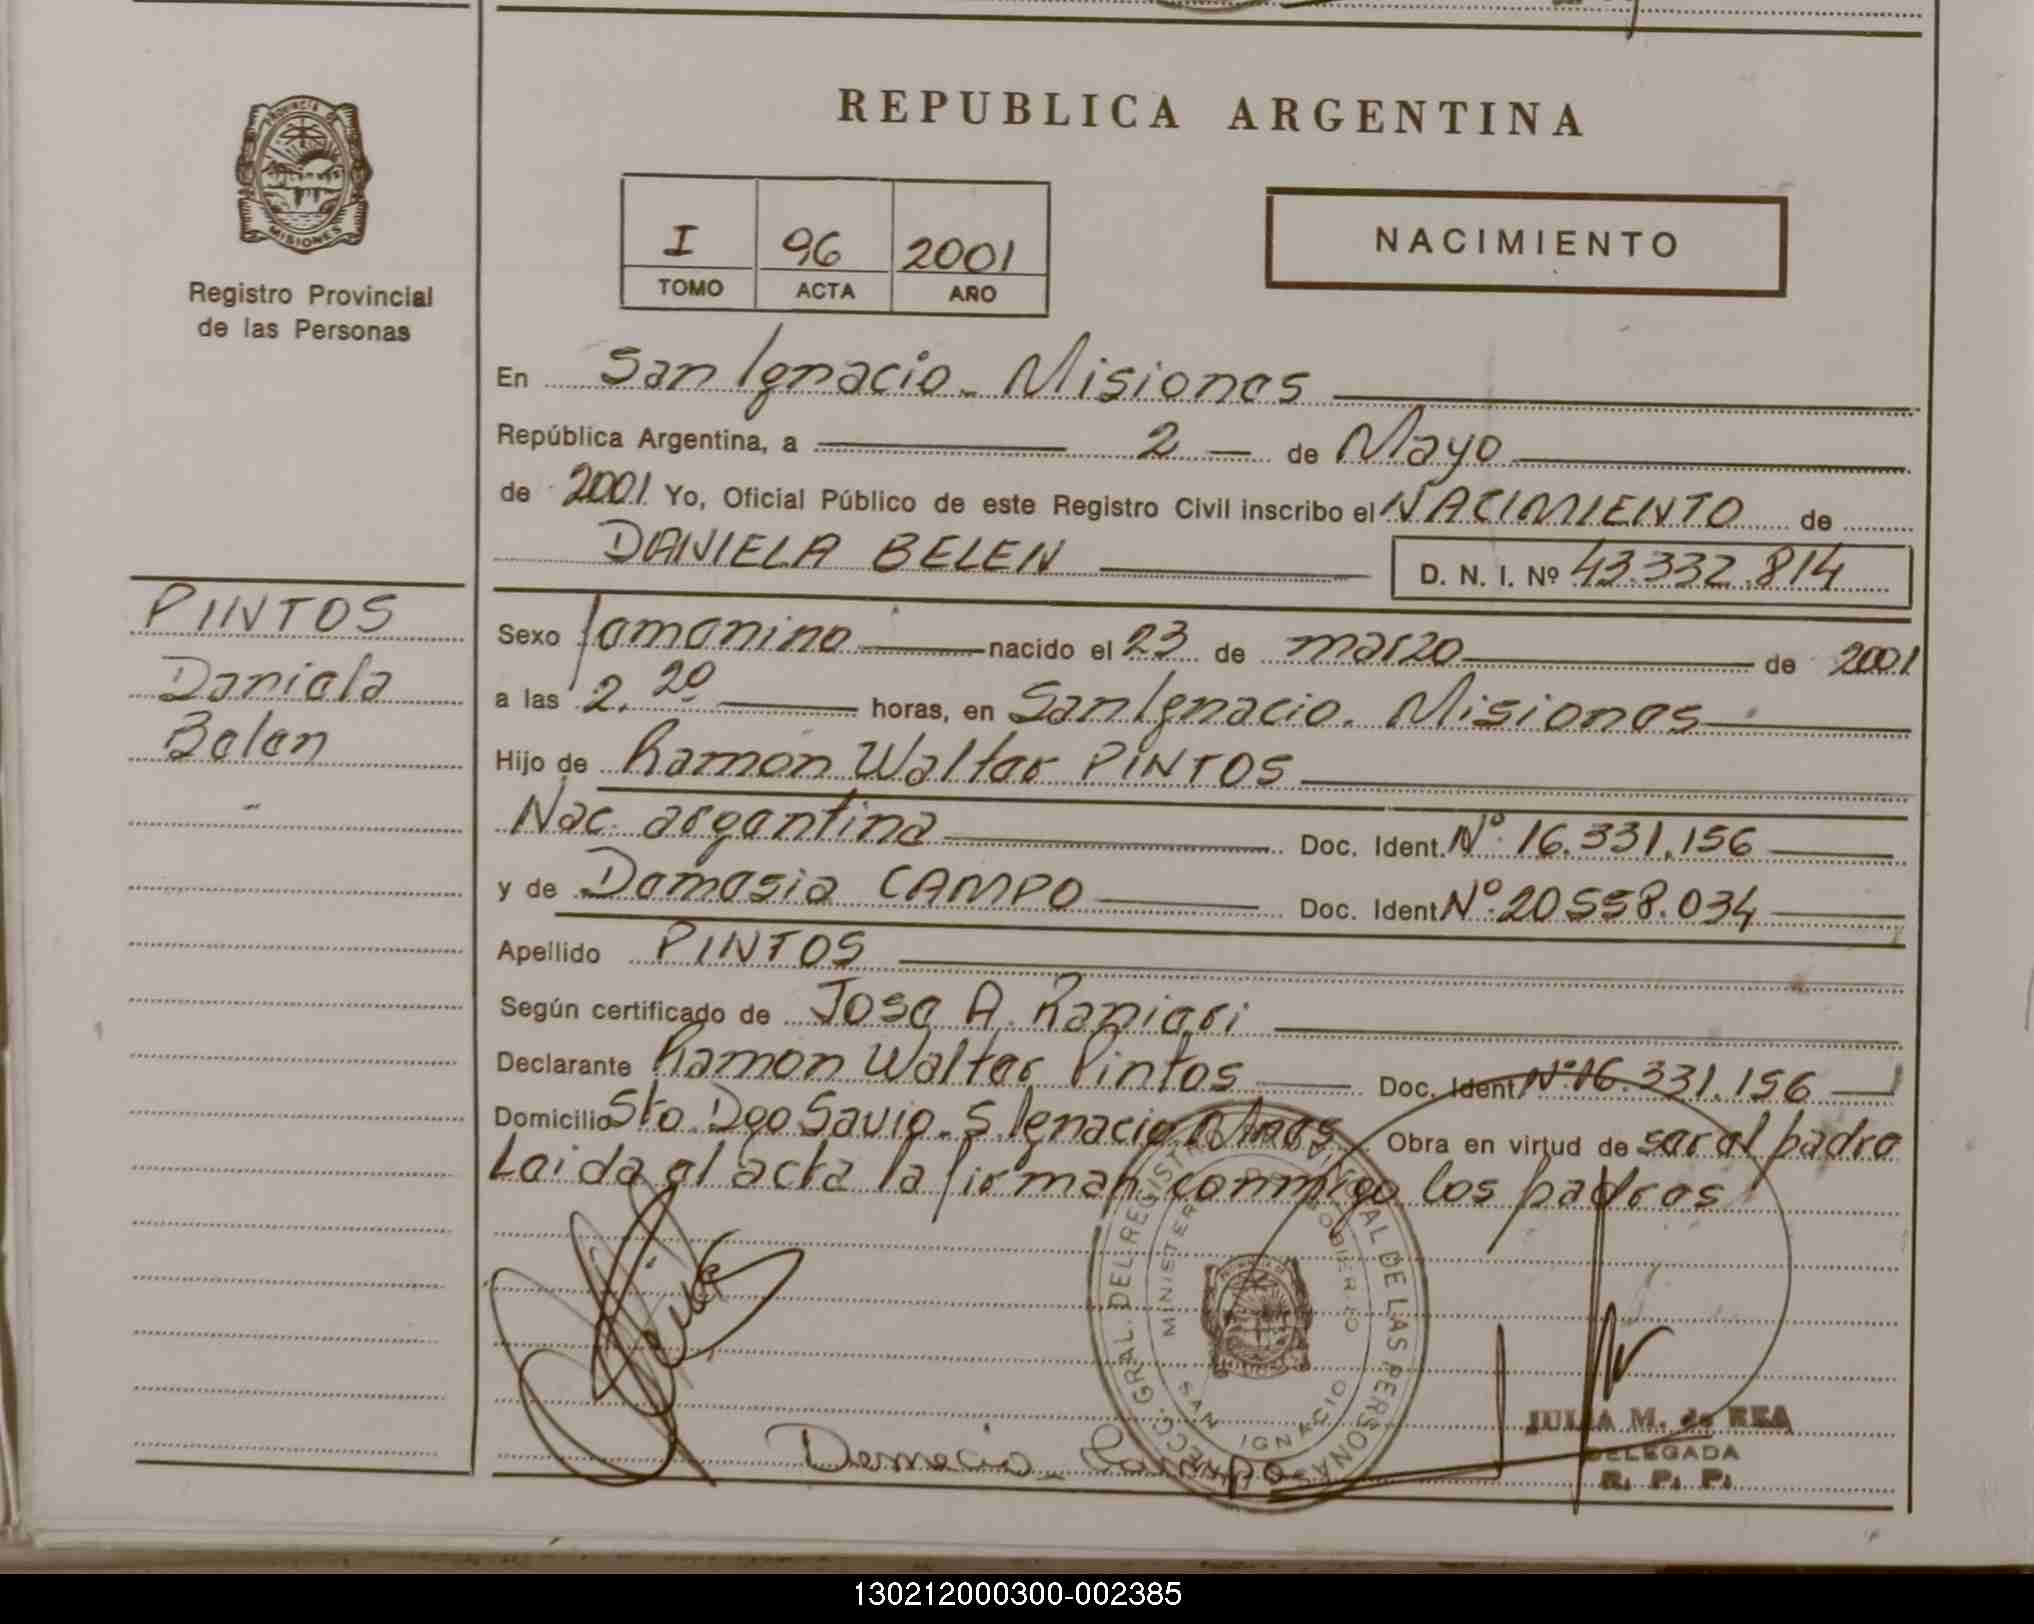 PROVINCIA DE
MISIONES
Registro Provincial
de las Personas
PINTOS
Daniela
Belen
REPUBLICA ARGENTINA
I 96 2001
TOMO ACTA AÑO
NACIMIENTO
En San Ignacio - Misiones
República Argentina, a 2 de Mayo
de 2001 Yo, Oficial Público de este Registro Civil inscribo el NACIMIENTO de
DANIELA BELEN D. N. I. Nº 43.332.814
Sexo femenino nacido el 23 de marzo de 2001
a las 2.20 horas, en San Ignacio. Misiones
Hijo de Ramon Walter PINTOS
Nac. argentina Doc. Ident. Nº 16.331.156
y de Damasia CAMPO Doc. Ident Nº 20.558.034
Apellido PINTOS
Según certificado de Jose A.
Declarante Ramon Walter Pintos Doc. Ident Nº 16.331.156
Domicilio Sto. Dgo Savio - S. Ignacio Mnes Obra en virtud de ser el padre
Leida el acta la firman conmigo los padres
DIRECC. GRAL. DEL REGISTRO PROVINCIAL DE LAS PERSONAS
MINISTERIO DE GOBIERNO
SAN IGNACIO
JULIA M. de REA
DELEGADA
R. P. P.
130212000300-002385